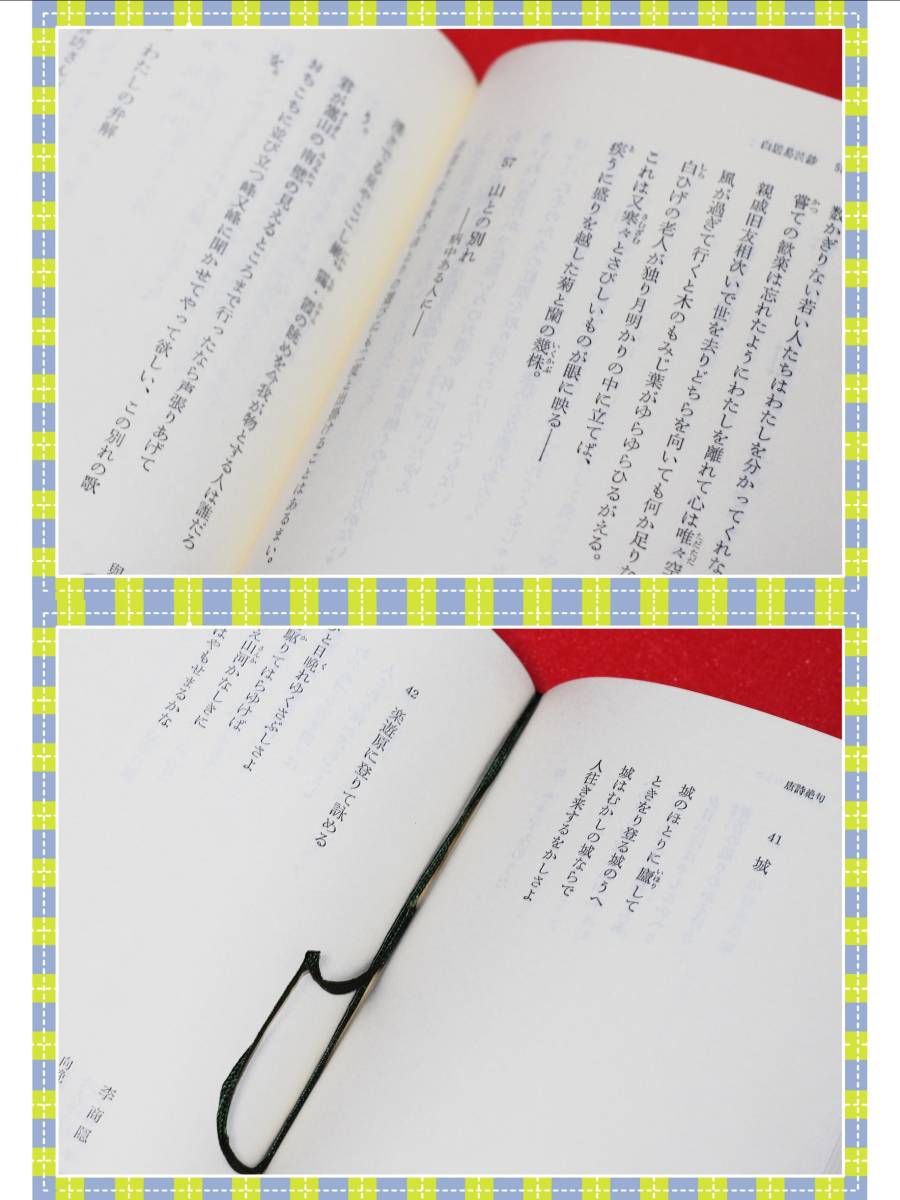 白居易詩鈔
数かぎりない若い人たちはわたしを分かってくれな
嘗ての歓楽は忘れたようにわたしを離れて心は唯々空
親戚旧友相次いで世を去りどちらを向いても何か足りな
風が過ぎて行くと木のもみじ葉がゆらゆらひるがえる。
白ひげの老人が独り月明かりの中に立てば、
これは又寒々とさびしいものが眼に映る——
疾うに盛りを越した菊と蘭の幾株。
57 山との別れ
——病中ある人に——
う。
君が嵩山の南壁の見えるところまで行ったなら声張りあげて
おちこちに並び立つ峰又峰に聞かせてやって欲しい、この別れの歌
を。
わたしの弁解
唐詩絶句
41 城
城のほとりに廬して
ときをり登る城のうへ
城はむかしの城ならで
人往き来するをかしさよ
42 楽遊原に登りて詠める
李商隠
と日晩れゆくさぶしさよ
駆りてはらゆけば
え山河かなしきに
はやもせまるかな